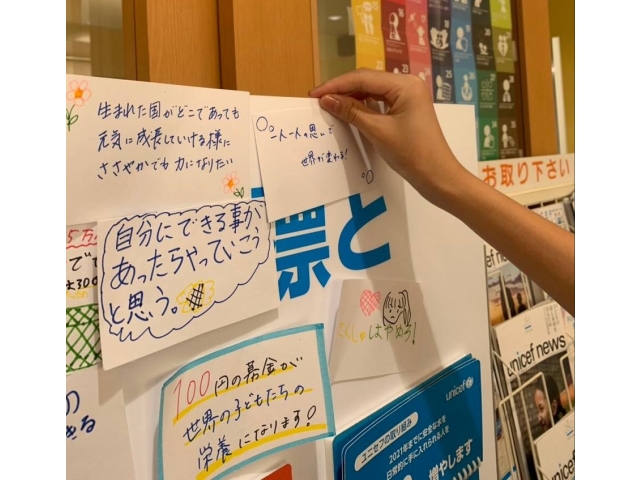 生まれた国がどこであっても
元気に成長していける様に
ささやかでも力になりたい
一人一人の思いで
世界が変わる!
お取り下さい
票と
5万
自分にできる事が
あったらやっていこう
と思う。
unicef news
はやめよう!
100円の募金が
世界の子どもたちの
栄養になります!
unicef
ユニセフの取り組み
2021年までに安全な水を
日常的に手に入れられる人を
増やします